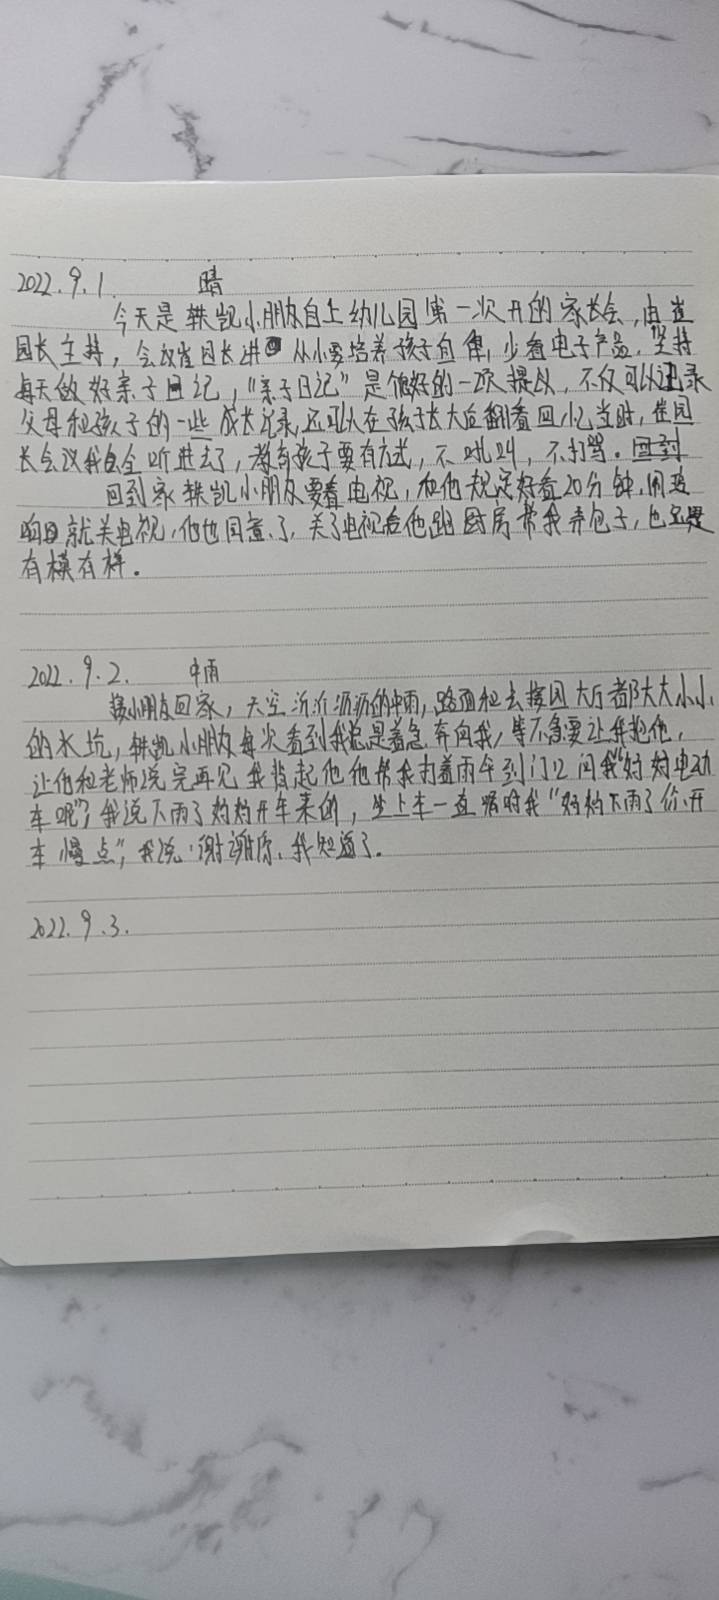 2022.9.1. 晴
今天是轶凯小朋友自上幼儿园第一次开的家长会,由崔
园长主持,会议崔园长讲 从小要培养孩子自律,少看电子产品,坚持
每天做好亲子日记,"亲子日记"是个很好的一项提议,不仅可以记录
父母和孩子的一些成长记录,还可以在孩子长大后翻看回忆当时,崔园
长会议我全听进去了,教育孩子要有方式,不吼叫,不打骂。回到
回到家轶凯小朋友要看电视,和他规定好看20分钟,闹钟
响就关电视,他也同意了,关了电视后他跑厨房帮我弄包子,也是
有模有样。
2022.9.2. 中雨
接小朋友回家,天空沥沥沥沥的中雨,路面和去接园大厅都大大小小
的水坑,轶凯小朋友每次看到我总是着急奔向我,等不急要让我抱他,
让他和老师说完再见我背起他他帮我打着雨伞到门口问我"妈妈电动
车呢"?我说下雨了妈妈开车来的,坐上车一直嘱咐我"妈妈下雨了你开
车慢点",我说:谢谢你,我知道了。
2022.9.3.